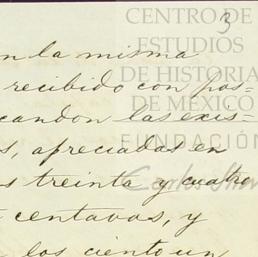 3
CENTRO DE
ESTUDIOS
DE HISTORIA
DE MÉXICO
FUNDACIÓN
Carlos
en la misma
recibido con pos-
las exis-
s, apreciadas en
s treinta y cuatro
centavos, y
los ciento un